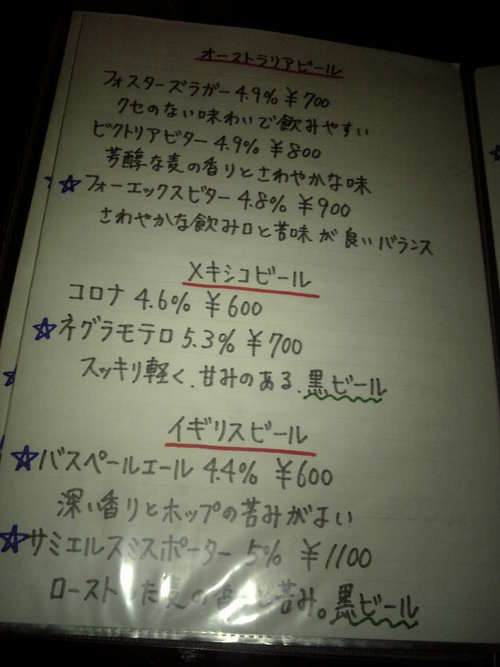 オーストラリアビール
フォスターズラガー 4.9% ¥700
クセのない味わいで飲みやすい
ビクトリアビター 4.9% ¥800
芳醇な麦の香りとさわやかな味
☆フォーエックスビター 4.8% ¥900
さわやかな飲み口と苦味が良いバランス
メキシコビール
コロナ 4.6% ¥600
☆ネグラモデロ 5.3% ¥700
スッキリ軽く、甘みのある、黒ビール
イギリスビール
☆バスペールエール 4.4% ¥600
深い香りとホップの苦みがよい
☆サミエルスミスポーター 5% ¥1100
ローストした麦の香りと苦み。黒ビール